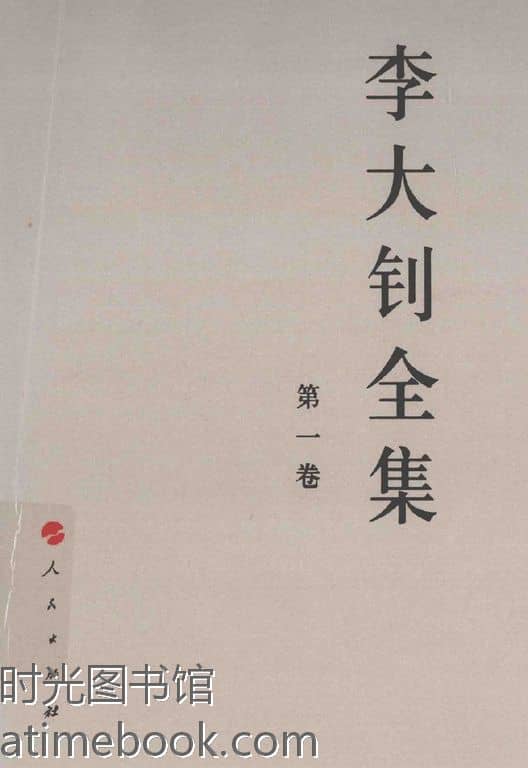 李大钊全集
第一卷
人民出版社
时光图书馆
atimebook.com